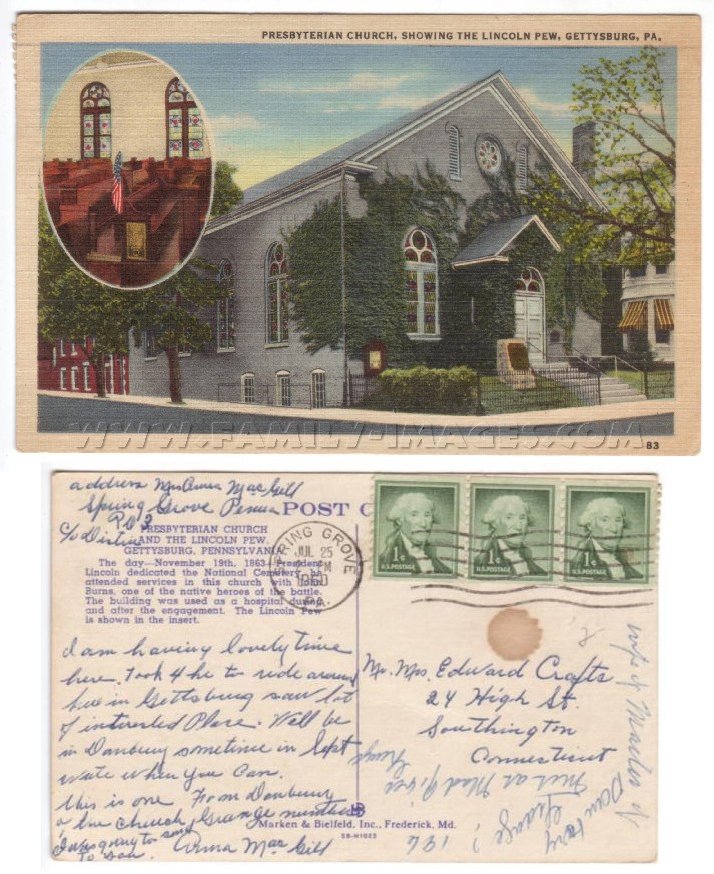 PRESBYTERIAN CHURCH, SHOWING THE LINCOLN PEW, GETTYSBURG, PA.
WWW.FAMILY-IMAGES.COM
83
address Mrs Anna MacGill
Spring Grove Penna
c/o
POST C
PRESBYTERIAN CHURCH
AND THE LINCOLN PEW,
GETTYSBURG, PENNSYLVANIA
The day—November 19th, 1863—President
Lincoln dedicated the National Cemetery, he
attended services in this church with
Burns, one of the native heroes of the battle.
The building was used as a hospital during
and after the engagement. The Lincoln Pew
is shown in the insert.
SPRING GROVE
JUL 25
M
1960
PA.
1¢
U.S. POSTAGE
1¢
U.S. POSTAGE
1¢
U.S. POSTAGE
I am having lovely time
here. Took 4 hr to ride around
here in Gettsburg saw lot
of interested Place. Will be
in Danbury sometime in Sept
write when you can.
this is one From Danbury
church, Grange
I was going to
to you. Anna MacGill
Mr. Mrs. Edward Crafts
24 High St.
Southington
Connecticut
wife of Master of
Danbury
Grange?
136
Marken & Bielfeld, Inc., Frederick, Md.
5B-H1023